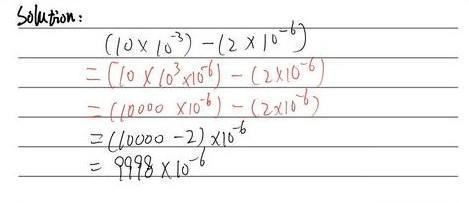 Solution:
(10 × 10⁻³) – (2 × 10⁻⁶)
= (10 × 10³ × 10⁻⁶) – (2 × 10⁻⁶)
= (10000 × 10⁻⁶) – (2 × 10⁻⁶)
= (10000 – 2) × 10⁻⁶
= 9998 × 10⁻⁶